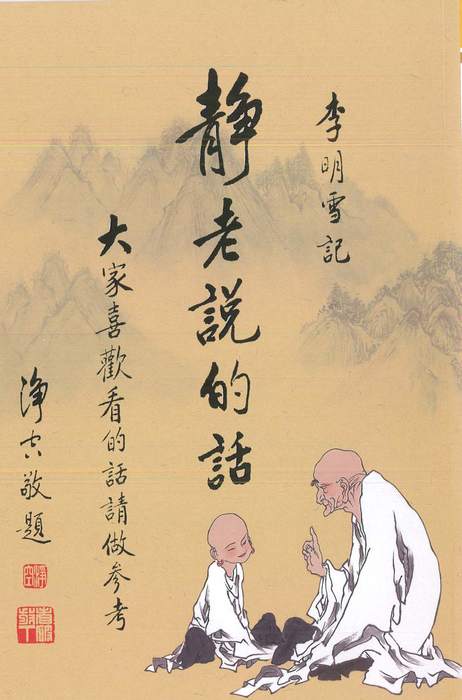 李明雪記
靜老說的話
大家喜歡看的話請做參考
淨空敬題